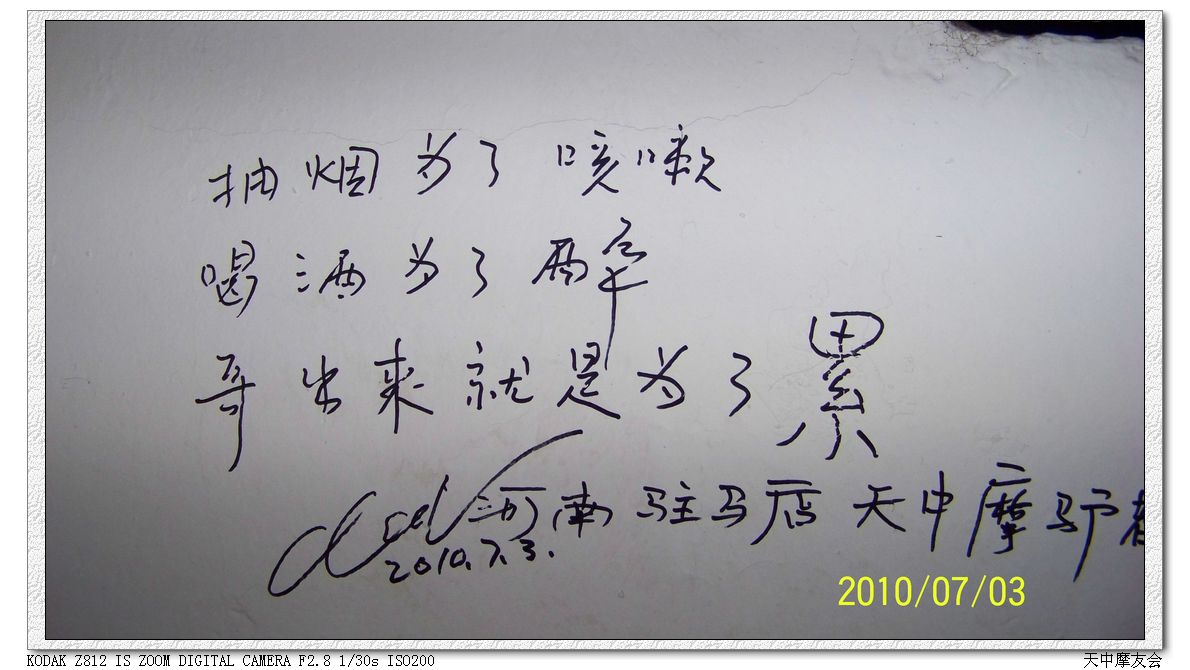 抽烟为了咳嗽
喝酒为了醉
哥出来就是为了累
河南驻马店 天中摩驴
2010.7.3.
2010/07/03
KODAK Z812 IS ZOOM DIGITAL CAMERA F2.8 1/30s ISO200
天中摩友会